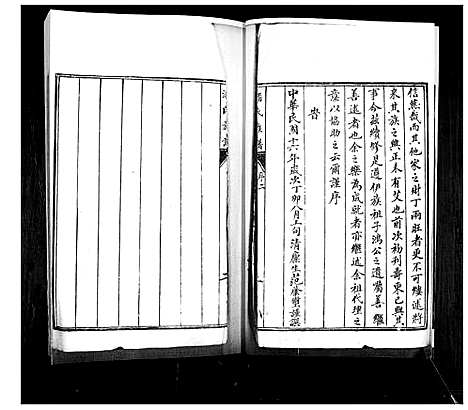 信然哉而其他家之財丁兩旺者更不可縷述將
來其族之興正未有艾也前次初刊壽東已與其
事今茲續修是道伊族祖子鴻公之遺囑善繼
善述者也余之樂為成就者亦繼述余祖代理之
意以協助之云爾謹序
旹
中華民國十六年歲次丁卯八月上旬清廩生范
謹撰
氏族譜
序二